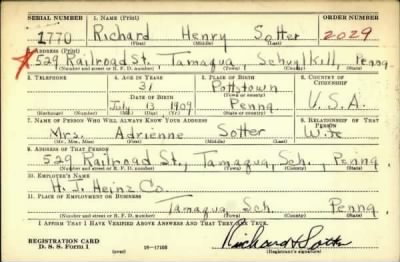 SERIAL NUMBER 1. NAME (Print) ORDER NUMBER
1770 Richard Henry Sotter 2029
(First) (Middle) (Last)
2. ADDRESS (Print)
529 Railroad St. Tamaqua, Schuylkill, Penna.
(Number and street or R. F. D. number) (Town) (County) (State)
3. TELEPHONE 4. AGE IN YEARS 5. PLACE OF BIRTH 6. COUNTRY OF CITIZENSHIP
31 Pottstown
DATE OF BIRTH (Town or county)
July 13 1909 Penna U.S.A.
(Exchange) (Number) (Mo.) (Day) (Yr.) (State or country)
7. NAME OF PERSON WHO WILL ALWAYS KNOW YOUR ADDRESS 8. RELATIONSHIP OF THAT PERSON
Mrs. Adrienne Sotter Wife
(Mr., Mrs., Miss) (First) (Middle) (Last)
9. ADDRESS OF THAT PERSON
529 Railroad St., Tamaqua, Sch., Penna.
(Number and street or R. F. D. number) (Town) (County) (State)
10. EMPLOYER'S NAME
H. J. Heinz Co.
11. PLACE OF EMPLOYMENT OR BUSINESS
Tamaqua Sch. Penna.
(Number and street or R. F. D. number) (Town) (County) (State)
I AFFIRM THAT I HAVE VERIFIED ABOVE ANSWERS AND THAT THEY ARE TRUE.
REGISTRATION CARD
D. S. S. Form 1 (over) 16-17105 Richard H Sotter
(Registrant's signature)